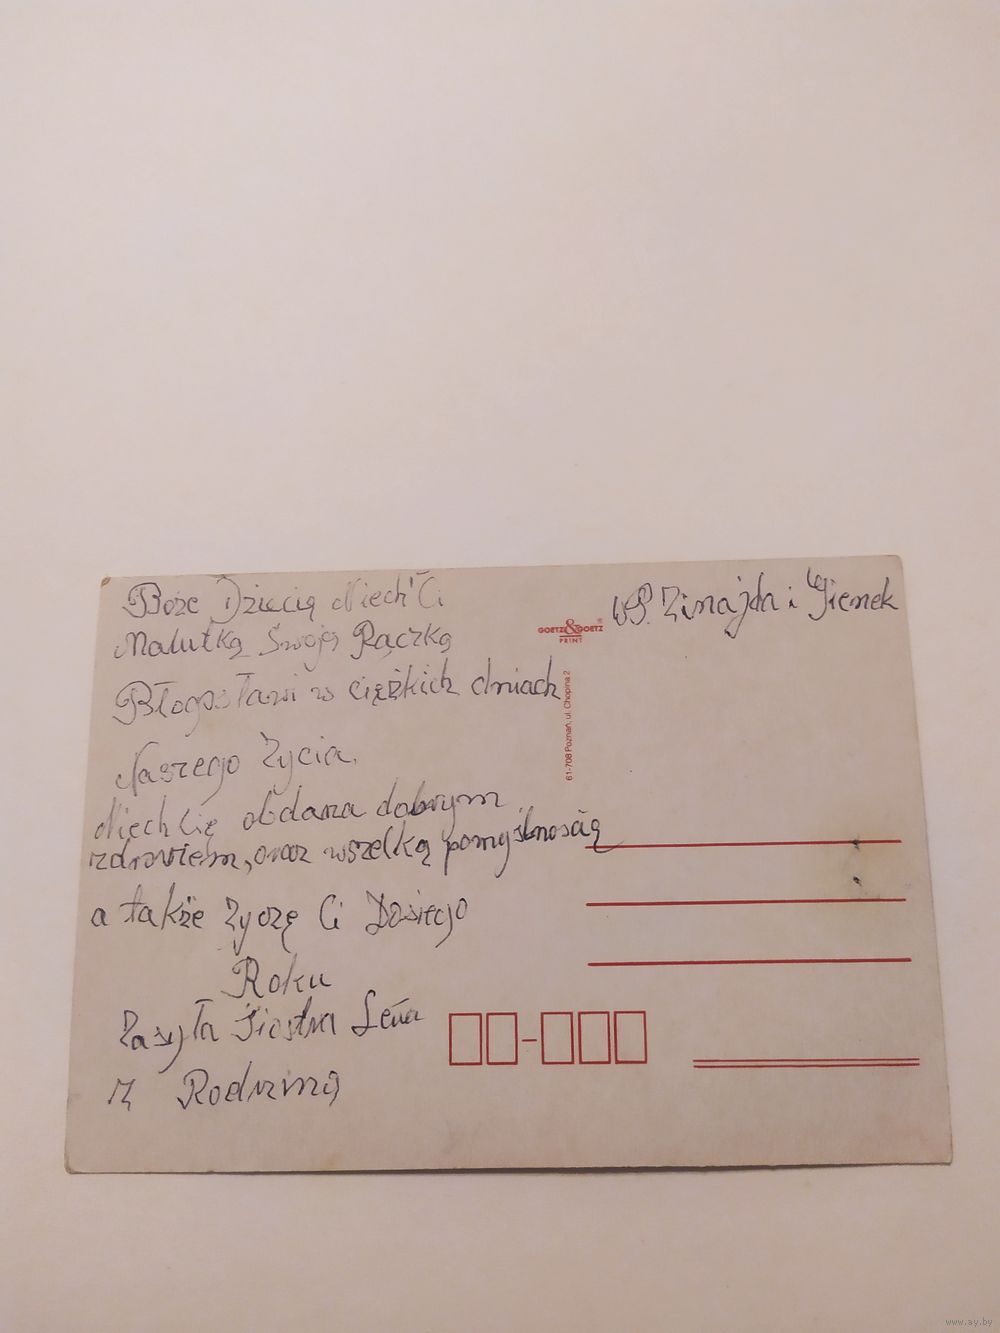 Boże Dziecię Niech Ci
Malutką Swoją Rączką
Błogosławi w ciężkich dniach
Naszego Życia.
Niech Cię obdarza dobrym
zdrowiem, oraz wszelką pomyślnością
a także Życzę Ci Dosiego
Roku
Zasyła Siostra Lena
Z Rodziną
W.P. Zinajda i Gienek
GOETZ&GOETZ
PRINT
61-708 Poznań, ul. Chopina 2
www.ay.by